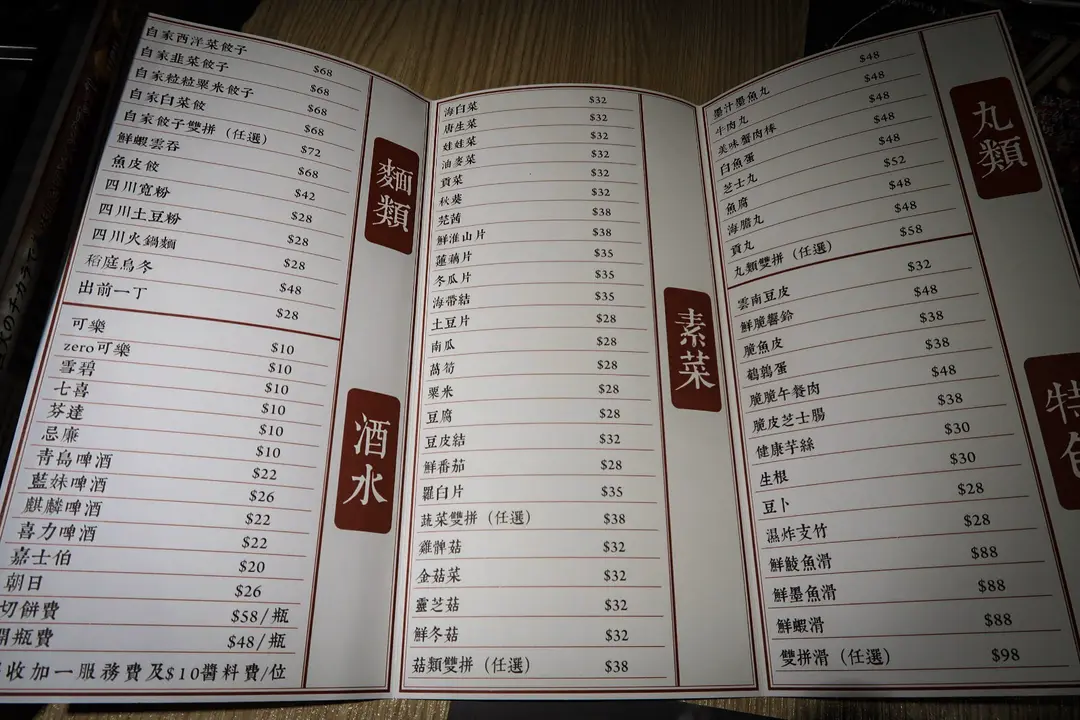 自家西洋菜餃子 $68
自家韭菜餃子 $68
自家粒粒粟米餃子 $68
自家白菜餃 $68
自家餃子雙拼（任選） $72
鮮蝦雲吞 $68
魚皮餃 $42
四川寬粉 $28
四川土豆粉 $28
四川火鍋麵 $28
稻庭烏冬 $48
出前一丁 $28
麵類
可樂 $10
zero可樂 $10
雪碧 $10
七喜 $10
芬達 $10
忌廉 $10
青島啤酒 $22
藍妹啤酒 $26
麒麟啤酒 $22
喜力啤酒 $22
嘉士伯 $20
朝日 $26
切餅費 $58/瓶
開瓶費 $48/瓶
收加一服務費及$10醬料費/位
酒水
海白菜 $32
唐生菜 $32
娃娃菜 $32
油麥菜 $32
貢菜 $32
秋葵 $32
芫茜 $38
鮮淮山片 $38
蓮藕片 $35
冬瓜片 $35
海帶結 $35
土豆片 $28
南瓜 $28
萵筍 $28
粟米 $28
豆腐 $28
豆皮結 $32
鮮番茄 $28
羅白片 $35
蔬菜雙拼（任選） $38
雞髀菇 $32
金菇菜 $32
靈芝菇 $32
鮮冬菇 $32
菇類雙拼（任選） $38
素菜
墨汁墨魚丸 $48
牛肉丸 $48
美味蟹肉棒 $48
白魚蛋 $48
芝士丸 $48
魚腐 $52
海膽丸 $48
貢丸 $48
丸類雙拼（任選） $58
丸類
雲南豆皮 $32
鮮脆響鈴 $48
脆魚皮 $38
鵪鶉蛋 $38
脆脆午餐肉 $48
脆皮芝士腸 $38
健康芋絲 $30
生根 $30
豆卜 $28
濕炸支竹 $28
鮮鯪魚滑 $88
鮮墨魚滑 $88
鮮蝦滑 $88
雙拼滑（任選） $98
特色